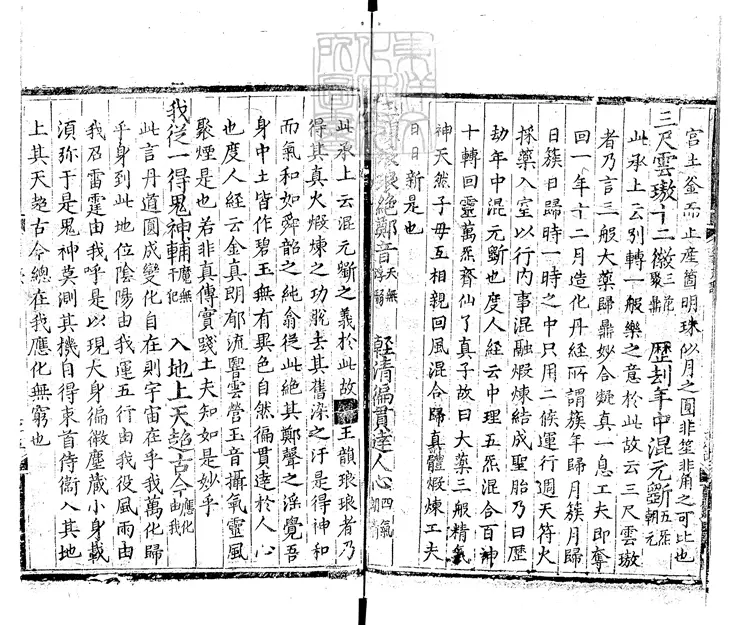 宮土釜而止産箇明珠似月之圓非笙非角之可比也
三尺雲璈十二徽三花聚鼎 歷刦年中混元斵五炁朝元
此承上云別轉一般樂之意於此故云三尺雲璈
者乃言三般大藥歸鼎妙合凝真一息工夫即奪
回一年十二月造化丹經所謂簇年歸月簇月歸
日簇日歸時一時之中只用二候運行週天符火
採藥入室以行內事混融煆煉結成聖胎乃曰歷
劫年中混元斵也度人經云中理五炁混合百神
十轉回靈萬炁齊仙了真子故曰大藥三般精氣
神天然子母互相親回風混合歸真體煆煉工夫
日日新是也
韻琅琅絶鄭音天無 輕清徧貫達人心四氣
此承上云混元斵之義於此故王韻琅琅者乃
得其真火煆煉之功脫去其舊染之汙是得神和
而氣和如舜韶之純翕從此絶其鄭聲之淫覺吾
身中土皆作碧玉無有異色自然徧貫達於人心
也度人經云金真朗郁流響雲營玉音攝氣靈風
聚煙是也若非真傳實踐士夫知如是妙乎
我從一得鬼神輔魔無干犯 入地上天超古今應化由我
此言丹道圓成變化自在則宇宙在乎我萬化歸
乎身到此地位陰陽由我運五行由我役風雨由
我召雷霆由我呼是以現大身徧微塵藏小身載
湏弥于是鬼神莫測其機自得束首侍衛入其地
上其天超古今總在我應化無窮也